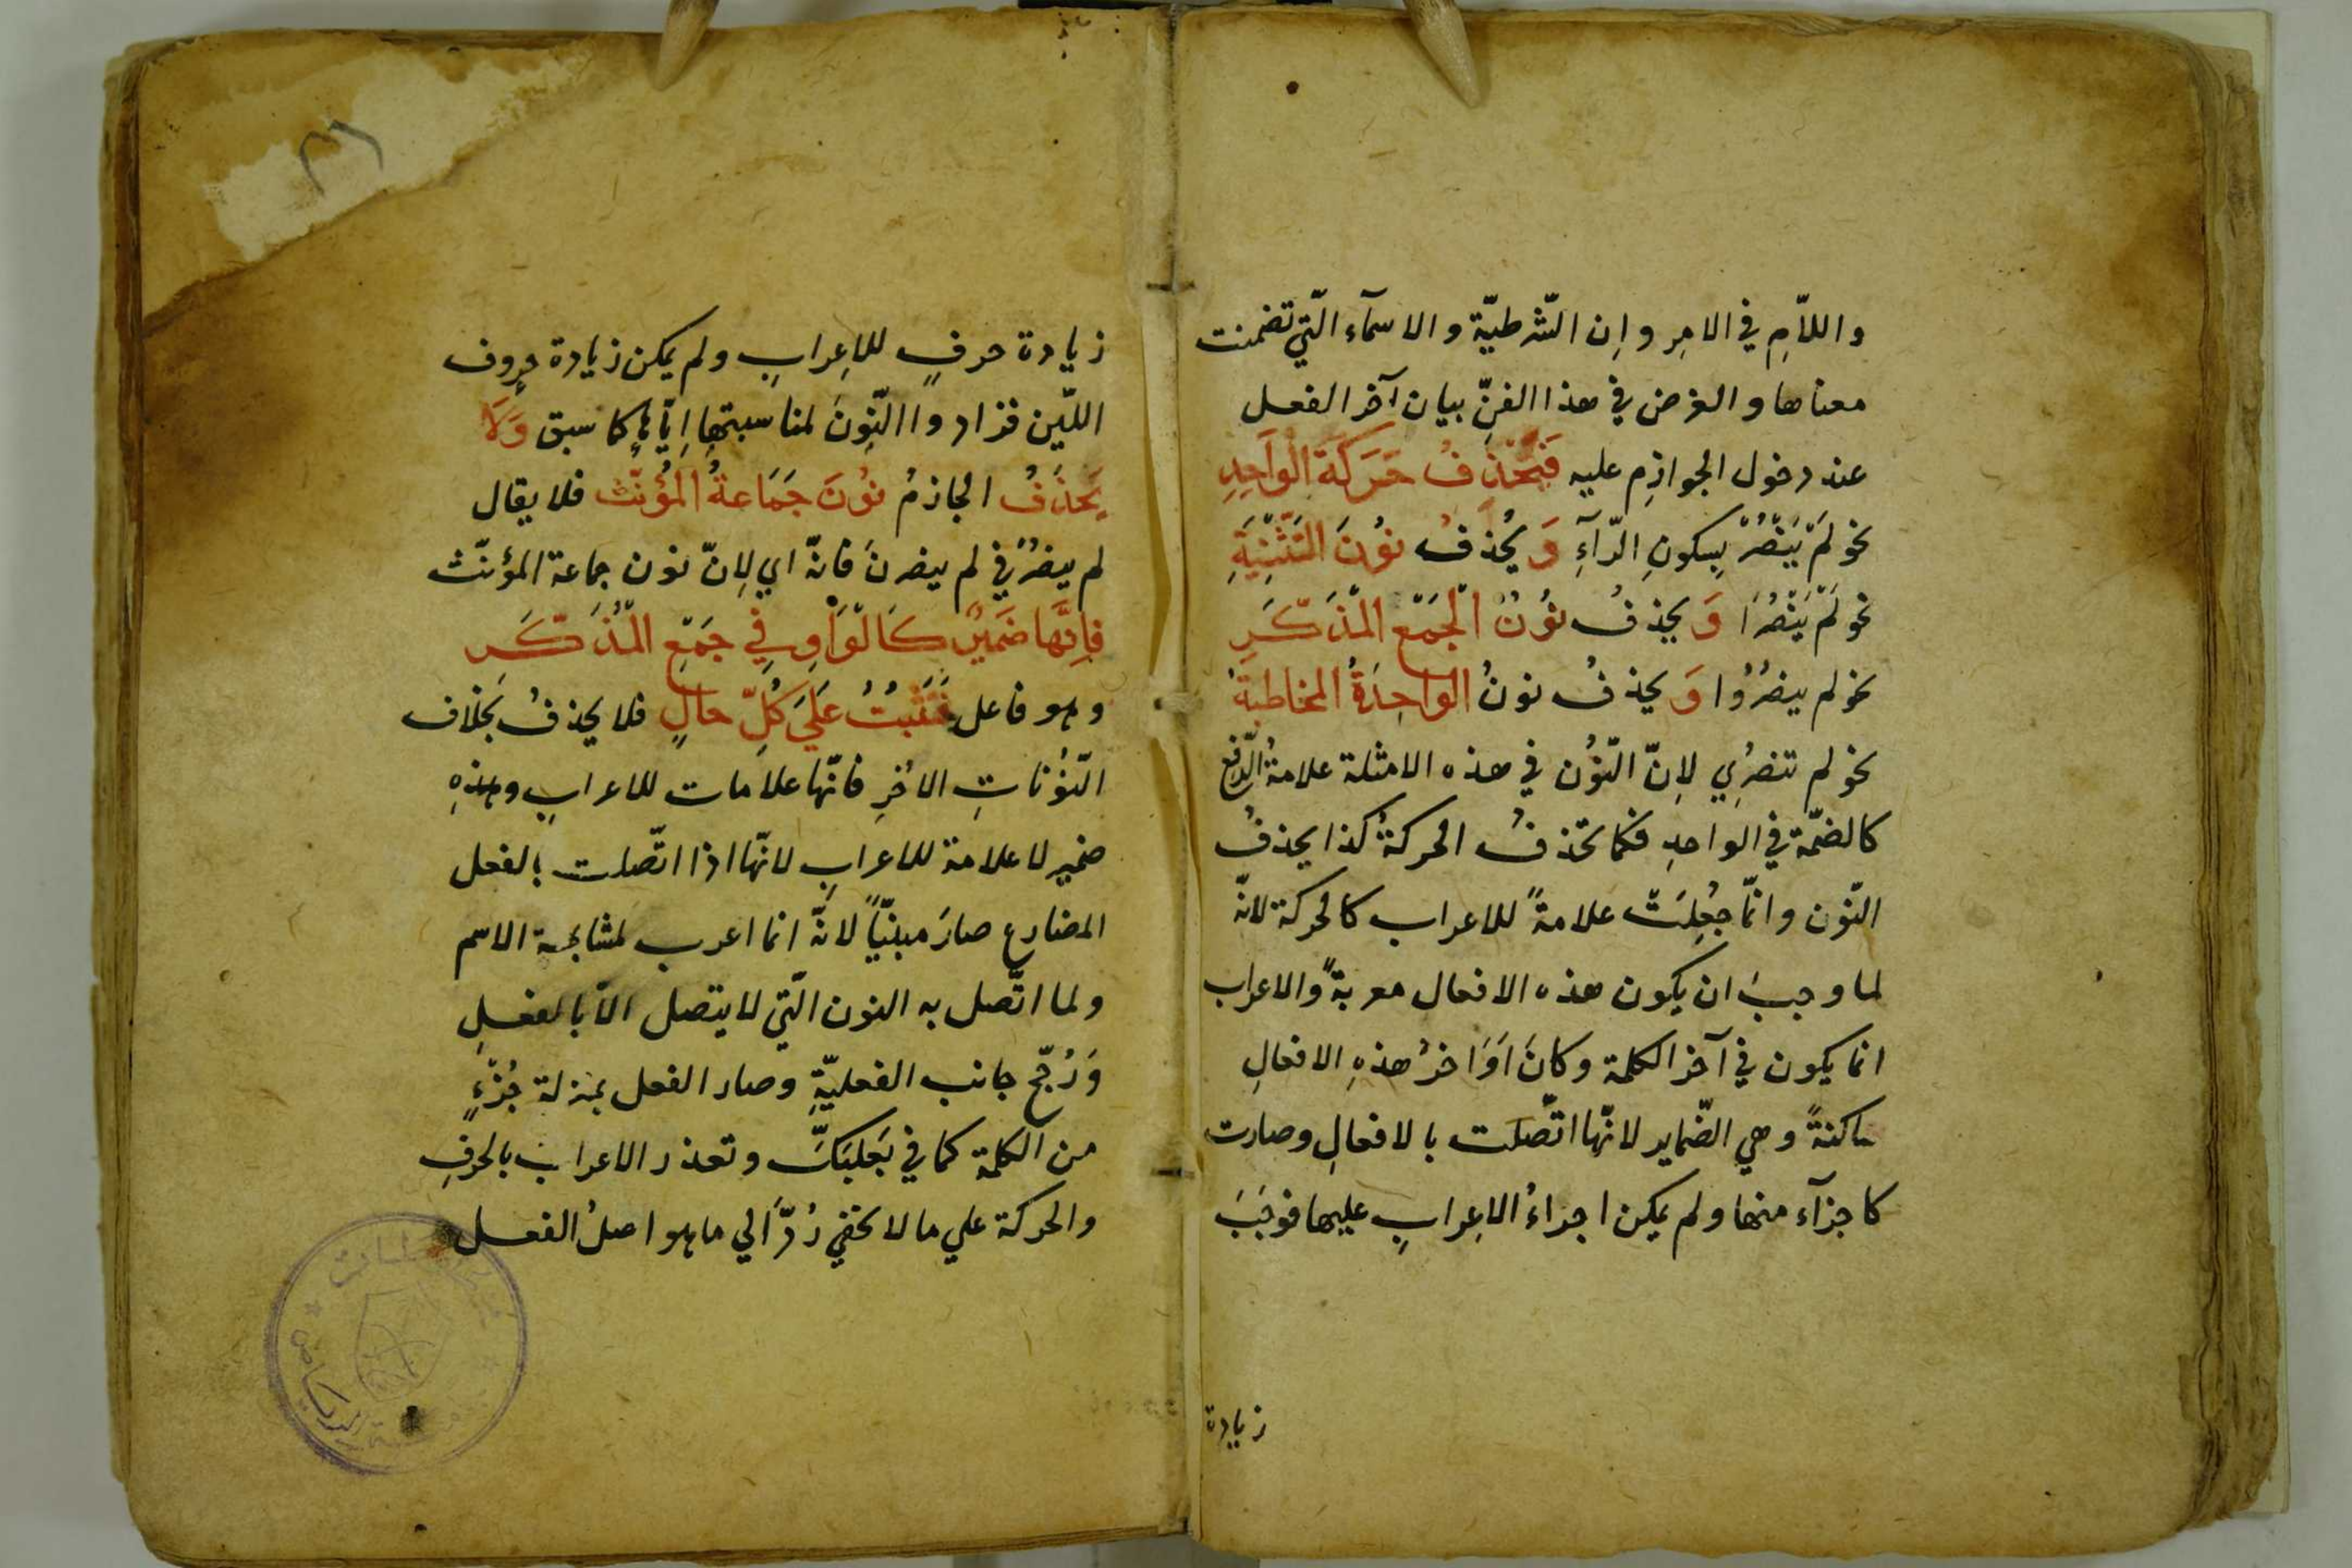 واللاّمِ في الامِر وإن الشّرطيّة والاسمآء الّتي تضمنت
معناها والغرض في هذا الفنِّ بيان آخر الفعل
عند دخول الجوازِم عليه فَيَحْذِفُ حَرَكَةَ الْوَاحِدِ
نحو لَمْ يَنْصُرْ بِسكونِ الرّآءِ وَ يَحْذفُ نُونَ التَّثْنِيَةِ
نحو لَمْ يَنْصُرَا وَ يحذفُ نُونُ الْجَمْعِ الْمُذَكَّرِ
نحو لم ينصُرُوا وَ يحذفُ نونُ الواحِدَةُ المخاطبةُ
نحو لم تنصُرِي لِانّ النّوُن في هذه الامثلة علامةُ الرّفع
كالضمّة في الواحدِ فكما تحذفُ الحركةُ كذا يحذفُ
النّون وانّما جُعِلَتْ علامةً للاعراب كالحركة لانّه
لما وجبَ ان يكون هذه الافعال معربةً والاعراب
انما يكون في آخر الكلمة وكانَ اَوَاخرُ هذهِ الافعالِ
ساكنةً وهي الضّماير لانّها اتّصلت بالافعالِ وصارت
كاجزآء منها ولم يمكن اجراءُ الاِعرابِ عليها فوجَبَ
زيادة
زيادة حرفٍ للاِعرابِ ولم يمكن زيادة حروف
اللّين فزادوا النّونَ لمناسبتها اِيّاها كما سبق وَلَا
يَحذفُ الجازمُ نُونَ جَمَاعةُ المُؤنّث فلا يقال
لم ينصُرْ في لم ينصرنَ فانّه اي لِانّ نون جماعة المؤنّث
فاِنَّها ضَمِيْرٌ كَالْوَاوِ فِي جَمْعِ الْمُذَكَّر
وهو فاعل فَتَثْبُتُ عَلَيَ كُلِّ حالٍ فلا يحذفُ بخلاف
النّوُناتِ الاُخرِ فانّها علامات للاعرابِ وهذهِ
ضمير لا علامة للاعرابِ لانّها اذا اتّصلت بالفعل
المضارع صارَ مبنيّاً لانّه انما اعرب لمشابهة الاسم
ولما اتّصل به النون الّتي لا يتصل الاّ بالفعلِ
وَرُجّح جانب الفعليّةِ وصار الفعل بمنزلة جُزْءٍ
من الكلمة كما في بَعْلبَكَّ وتعذر الاعراب بالحرفِ
والحركة علي ما لا يخفي رُدَّ الي ما هو اصلُ الفعل